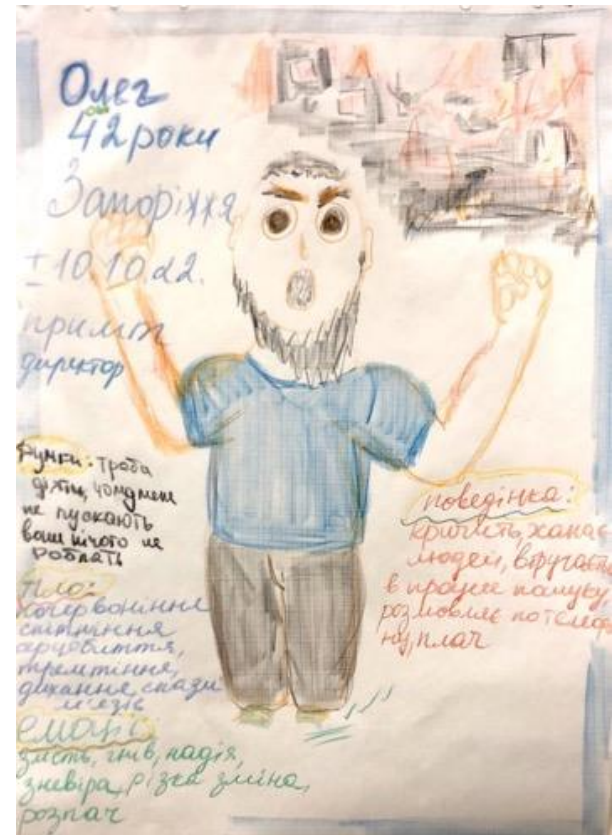 Олег
42 роки
Запоріжжя
± 10.10.22.
директор
Думки: треба
діяти, чому мене
не пускають
вони нічого не
роблять
Тіло:
почервоніння
спітніння
серцебиття,
тремтіння,
дихання, спазм
м'язів
Емоції:
злість, гнів, надія,
зневіра, різка зміна,
розпач
поведінка:
кричить, хапає
людей, втручається
в процес пошуку,
розмовляє по телефо
ну, плач